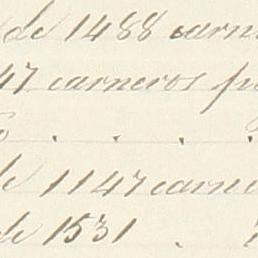 de 1488 carn
47 carneros p
de 1147 carne
de 1531 .